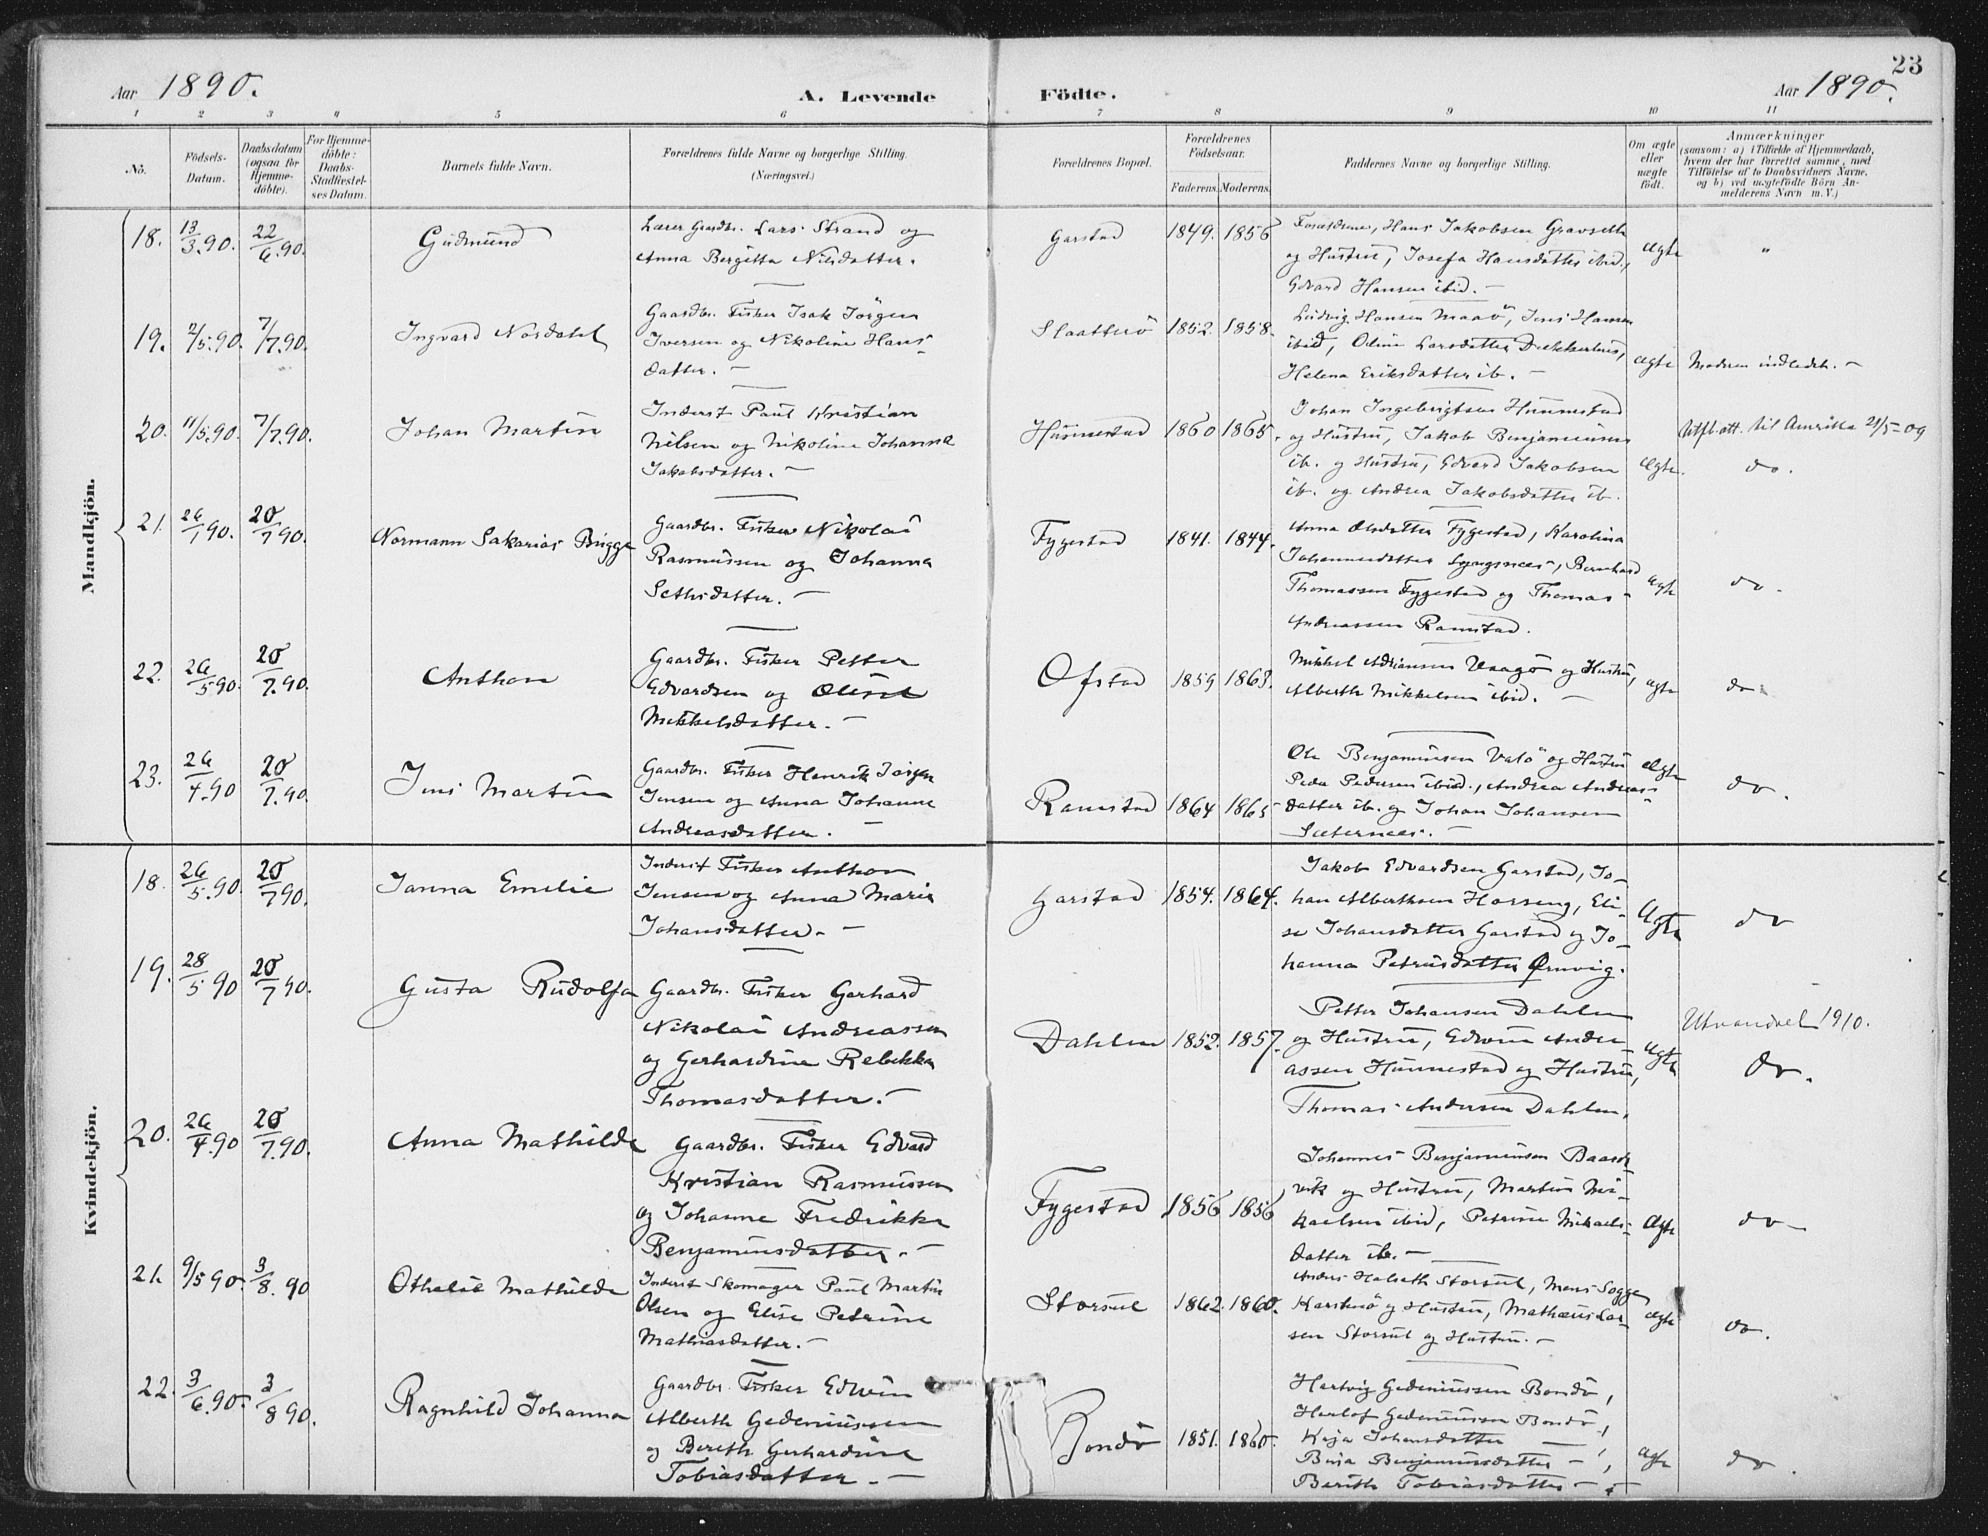 23
Aar 1890.
A. Levende Födte.
Aar 1890.
1 2 3 4 5 6 7 8 9 10 11
No.
Födsels-Datum.
Daabsdatum (ogsaa for Hjemme-döbte).
For Hjemme-döbte: Daabs-Stadfæstel-ses Datum.
Barnets fulde Navn.
Forældrenes fulde Navne og borgerlige Stilling.
(Næringsvei.)
Forældrenes Bopæl.
Forældrenes Födselsaar.
Faderens. Moderens.
Faddernes Navne og borgerlige Stilling.
Om ægte eller uægte födt.
Anmærkninger
(saasom: a) i Tilfælde af Hjemmedaab,
hvem der har forrettet samme, med
Tilföielse af to Daabsvidners Navne,
og b) ved uægtefödte Börn An-
melderens Navn m. V.)
Mandkjön.
18. 13/3.90. 22/6.90. Gudmund
Lærer Gaardbr. Lars Strand og
Anna Bergitta Nilsdatter. –
Garstad 1849. 1856
Forældrene, Hans Jakobsen Gravseth
og Hustru, Josefa Hansdatter ibid.,
Edvard Hansen ibid. –
ægte "
19. 2/5.90. 7/7.90. Ingvard Nordahl
Gaardbr. Fisker Isak Jörgen
Iversen og Nikoline Hans-
datter. –
1852. 1858.
Ludvig Hansen Maaö, Jens Hansen
ibid, Odine Larsdatter
Helena Eriksdatter ib. –
ægte Moderen indledet. –
20. 11/5.90. 7/7.90. Johan Martin
Inderst Paul Kristian
Nilsen og Nikoline Johanna
Jakobsdatter. –
Hunnestad 1860 1865.
Johan Ingebrigtsen Hunnestad
og Hustru, Jakob Benjaminsen
ib. og Hustru, Edvard Jakobsen
ib. og Andrea Jakobsdatter ib.
ægte. Utfl.att. til Amerika 21/5-09
do.
21. 26/1 90. 20/7 90. Normann Sakarias Brügge
Gaardbr. Fisker Nikolai
Rasmussen og Johanna
Sethsdatter. –
Fygestad 1841. 1844.
Anna Olsdatter Fygestad, Karolina
Johannesdatter Bernhard
Thomassen Fygestad og Thomas
Andreassen Ramstad.
ægte do.
22. 26/5 90. 20/7.90. Anthon
Gaardbr. Fisker Petter
Edvardsen og Oline
Mikkelsdatter. –
Ofstad 1859 1863.
Mikkel Adriansen Vaagö og Hustru,
Alberth Mikkelsen ibid. –
ægte do
23. 26/4.90 20/7.90. Jens Martin
Gaardbr. Fisker Henrik Jörgen
Jensen og Anna Johanne
Andreasdatter. –
Ramstad 1864 1865
Ole Benjaminsen Valö og Hustru
Peda Pedersen ibid., Andrea Andreas-
datter ib. og Johan Johansen
Sæternæs. –
ægte do.
Kvindekjön.
18. 26/5.90. 20/7 90. Janna Emelie
Inderst Fisker Anthon
Jensen og Anna Maria
Johansdatter. –
Garstad 1854. 1864.
Jakob Edvardsen Garstad, Jo-
han Albertsen Horseng, Eli-
se Johansdatter Garstad og Jo-
hanna Petrusdatter Ørnvig.
ægte do
19. 28/5 90 20/7 90. Gusta Rudolfa
Gaardbr. Fisker Gerhard
Nikolai Andreassen
og Gerhardine Rebekka
Thomasdatter. –
Dahlen 1852. 1857.
Petter Johansen Dahlen
og Hustru, Edvin Andre-
assen Hunnestad og Hustru,
Thomas Andersen Dahlen.
ægte Utvandret 1910.
do.
20. 26/4.90 20/7.90. Anna Mathilde
Gaardbr. Fisker Edvard
Kristian Rasmussen
og Johanne Fredrikke
Benjaminsdatter. –
Fygestad 1856 1856
Johannes Benjaminsen Baard-
vik og Hustru, Martin Mi-
kaelsen ibid, Petrine Mikaels-
datter ib. –
ægte do –
21. 9/5 90. 3/8.90 Othelie Mathilde
Inderst Skomager Paul Martin
Olsen og Elise Petrine
Mathiasdatter. –
Storsul 1862. 1860.
Anders Halseth Storsul, Mons Sogge
og Hustru, Mathæus Lar-
sen Storsul og Hustru. –
ægte do.
22. 3/6.90. 3/8 90. Ragnhild Johanna
Gaardbr. Fisker Edvin
Alberth Gedeniussen
og Berith Gerhardine
Tobiasdatter. –
Bondö 1851. 1860.
Hartvig Gedeniussen Bondö,
Herlof Gedeniussen Bondö,
Kaja Johansdatter – ,
Benjaminsdatter – ,
Berith Tobiasdatter –
ægte do.